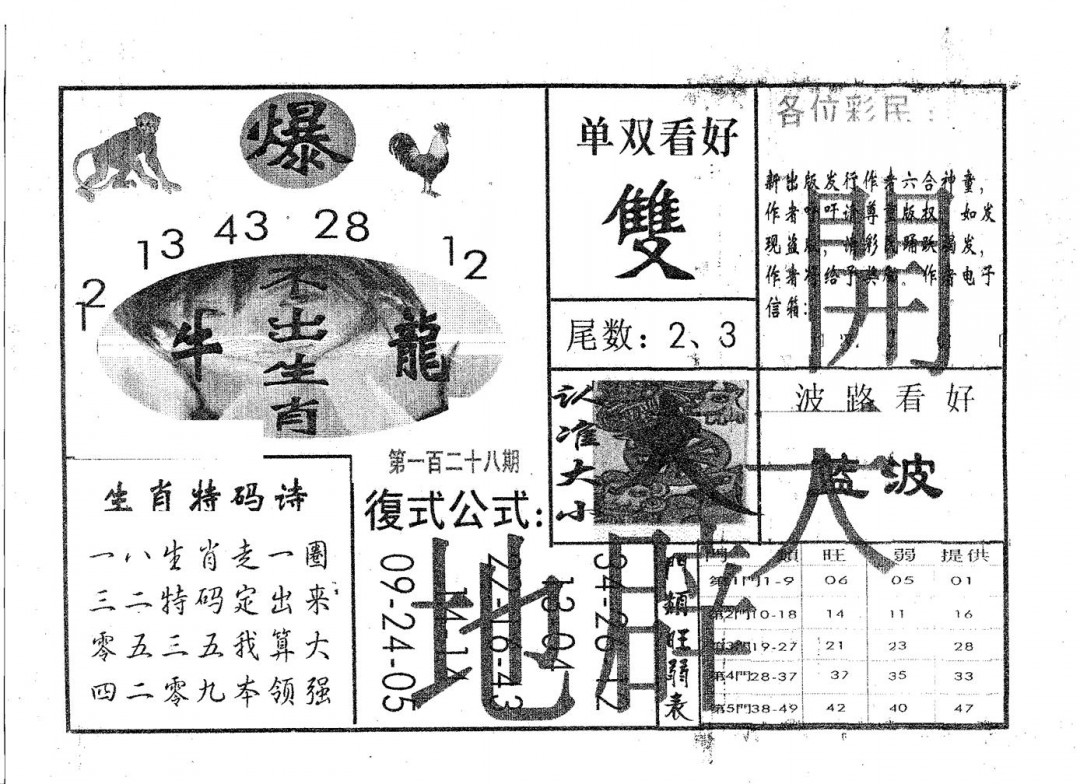 爆
21 13 43 28 12
不出生肖
牛 龍
单双看好
雙
尾数：2、3
认准大小
各位彩民：
新出版发行作者六合神童，
作者呼吁请尊重版权，如发
现盗版，请彩民踊跃揭发，
作者将给予奖励。作者电子
信箱：
開
波路看好
蓝波
第一百二十八期
復式公式：
09-24-05
14
27-16-43
13-04
34-26-12
生肖特码诗
一八生肖走一圈
三二特码定出来
零五三五我算大
四二零九本领强
門類旺弱表
門 類 旺 弱 提供
第1門1-9 06 05 01
第2門10-18 14 11 16
第3門19-27 21 23 28
第4門28-37 37 35 33
第5門38-49 42 40 47
天
地